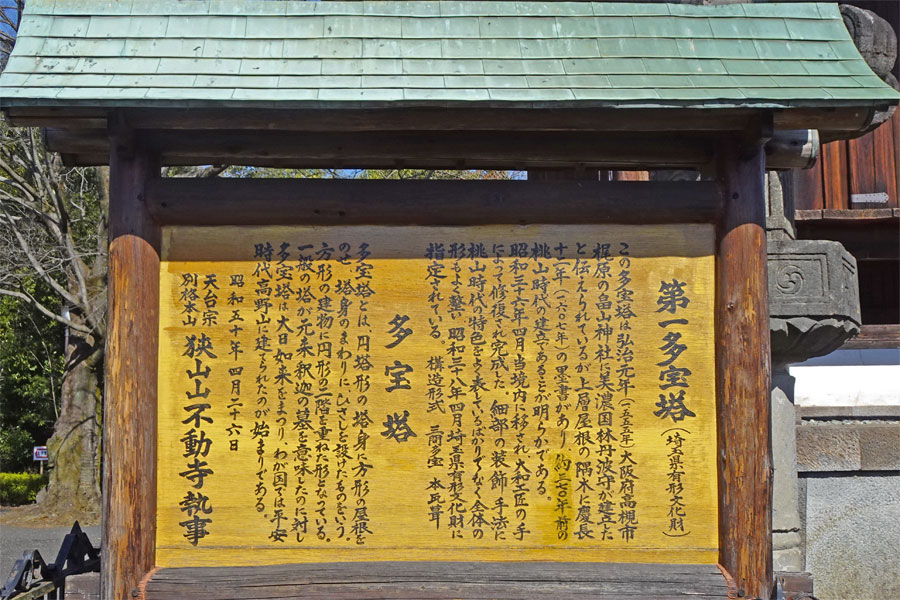 第一多宝塔（埼玉県有形文化財）
この多宝塔は弘治元年（一五五五年）大阪府高槻市
梶原の畠山神社に美濃国林丹波守が建立した
と伝えられているが上層屋根の隅木に慶長
十二年（一六〇七年）の墨書があり、約三七〇年前の
桃山時代の建立であることが明らかである。
昭和三十六年四月当境内に移され大和匠の手
によって修復され完成した 細部の装飾 手法に
桃山時代の特色をよく表しているばかりでなく全体の
形もよく整い 昭和三十八年四月埼玉県有形文化財に
指定されている。 構造形式 三間多宝 本瓦葺
多宝塔
多宝塔とは、円塔形の塔身に方形の屋根を
のせ、塔身のまわりにひさしを設けたものをいう。
方形の建物に円形の二階を重ねた形となっている。
一般の塔が元来釈迦の墓を意味したのに対し
多宝塔は大日如来をまつり、わが国では平安
時代高野山に建てられたのが始まりである。
昭和五十年四月二十六日
天台宗
別格本山 狭山山不動寺執事